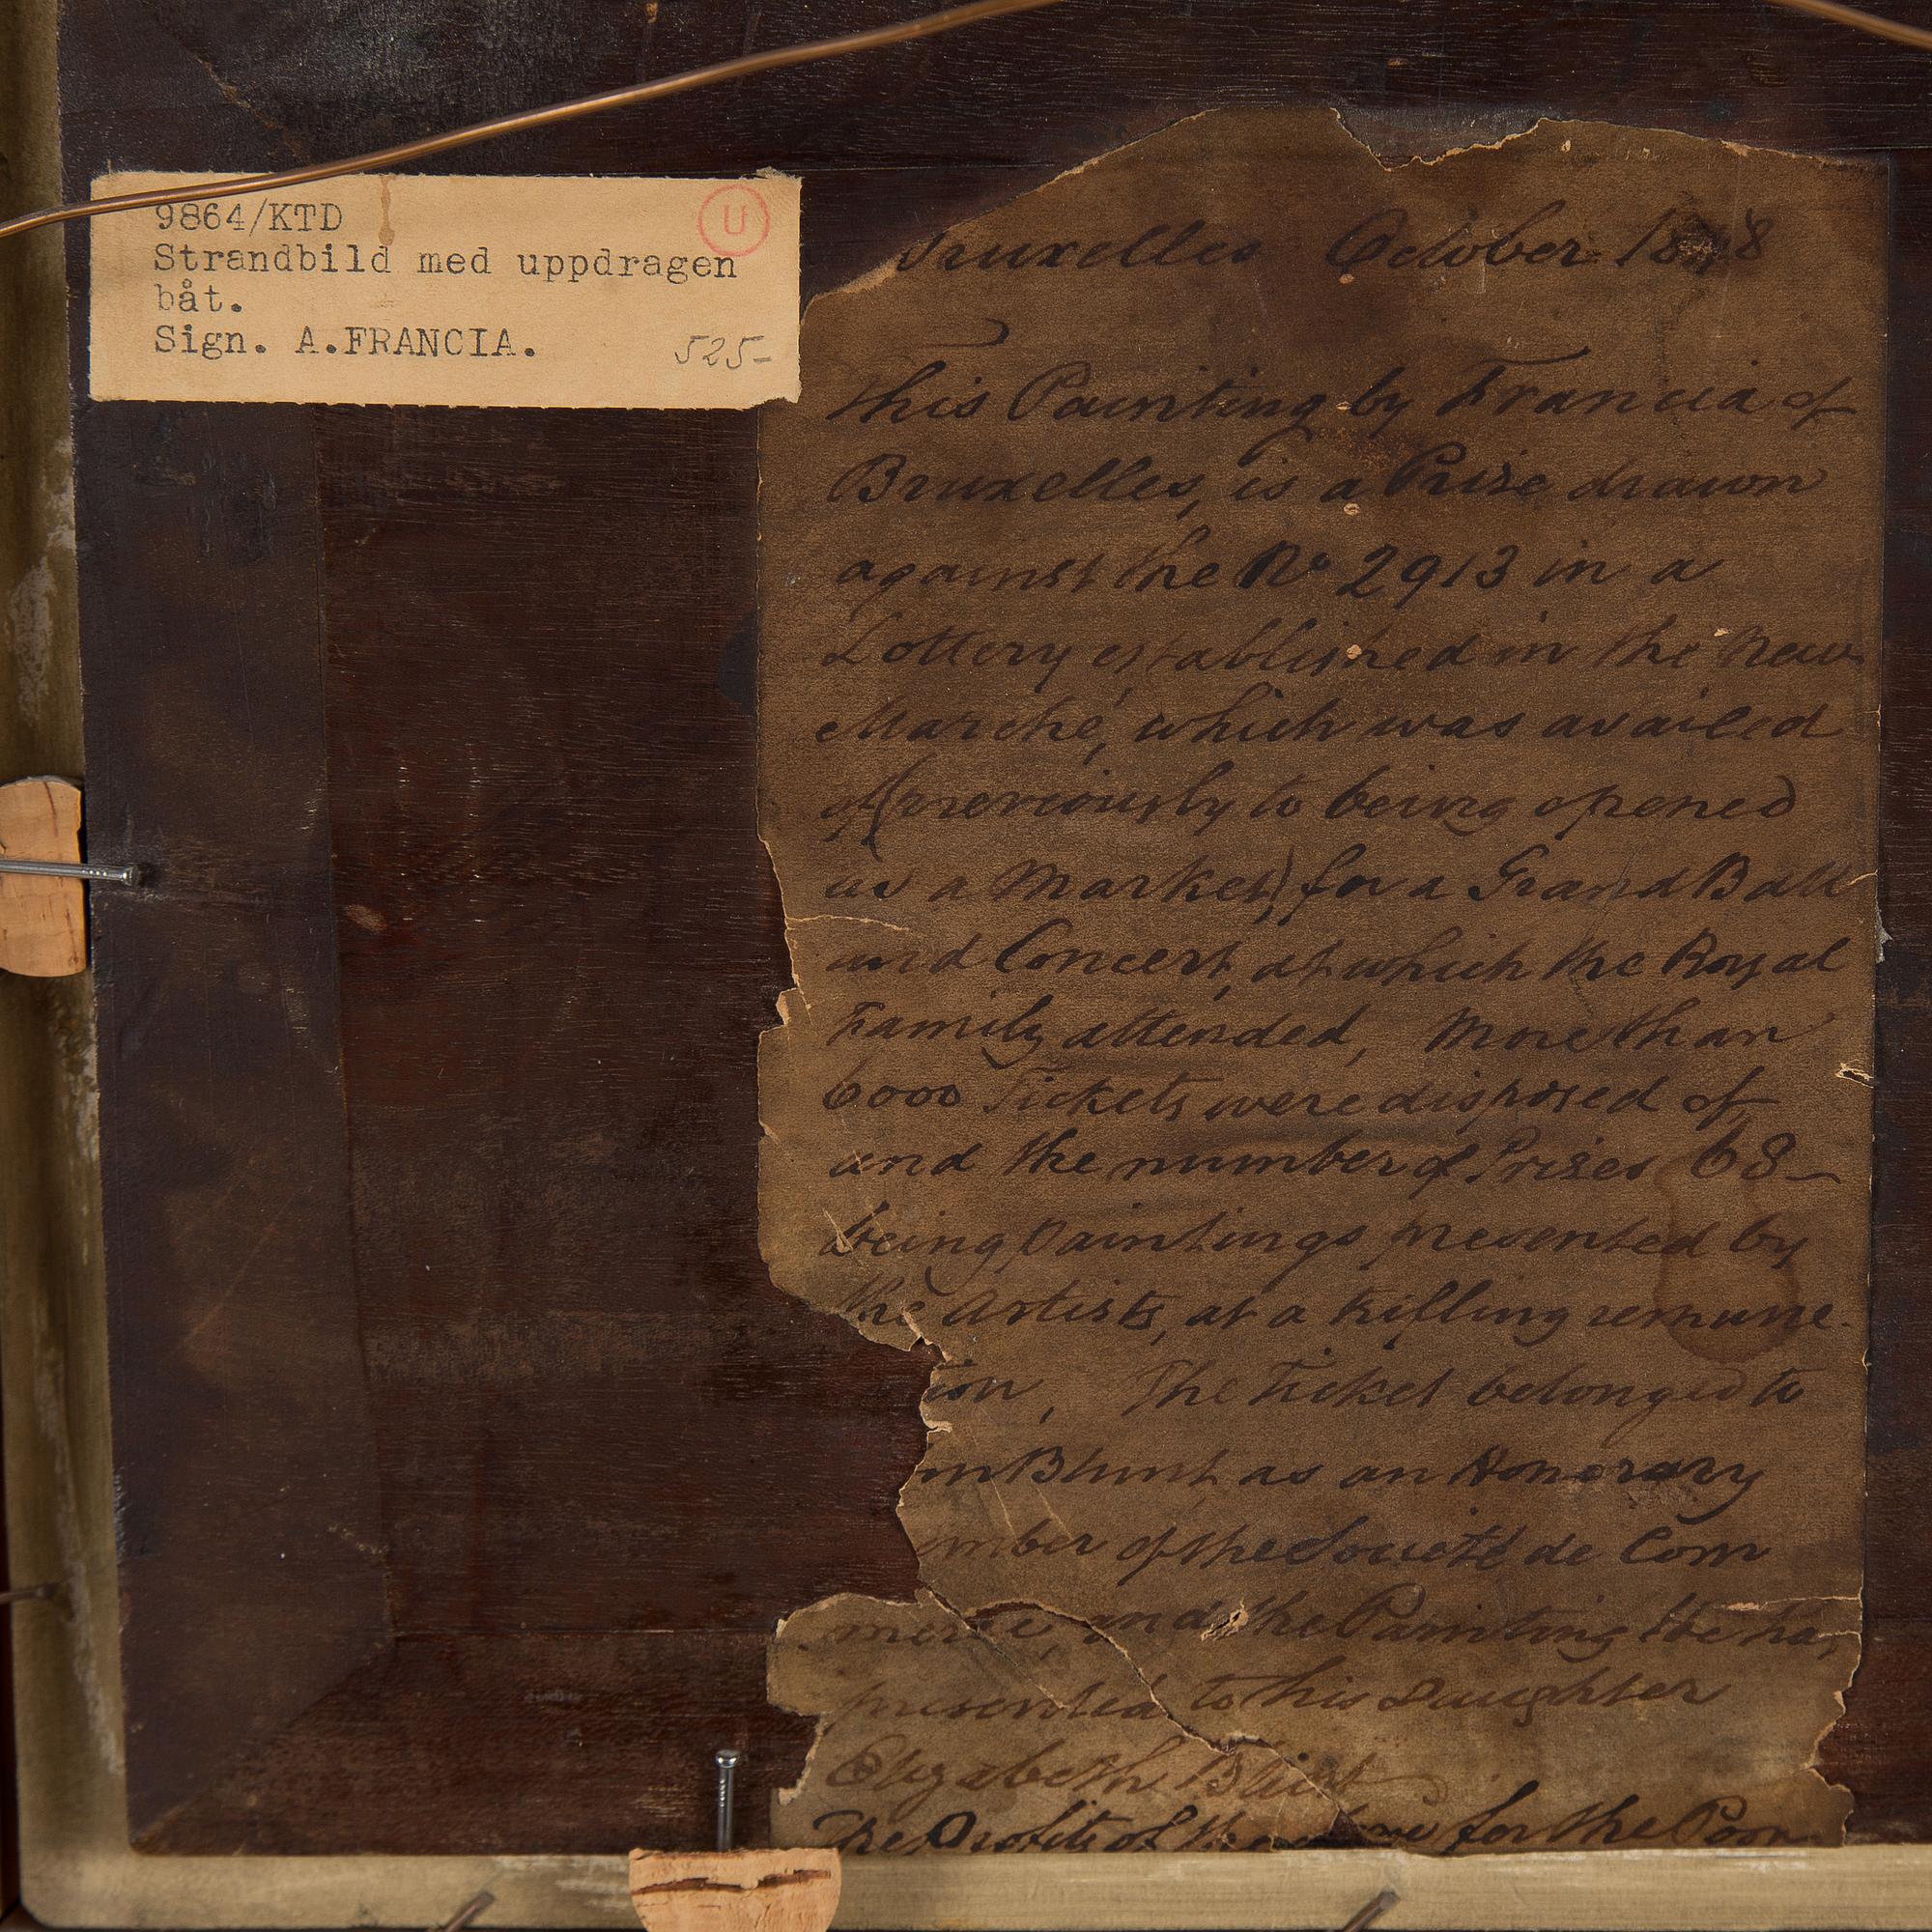 9864/KTD
U
Strandbild med uppdragen
båt.
Sign. A.FRANCIA.
525-
Bruxelles October 1848
This Painting by Francia of
Bruxelles, is a Prize drawn
against the No 2913 in a
Lottery established in the New
Marché, which was availed
of (previously to being opened
as a Market) for a Grand Ball
and Concert, at which the Royal
Family attended, More than
6000 Tickets were disposed of
and the number of Prizes 68—
being Paintings presented by
the Artists, at a trifling remune-
ion, The Ticket belonged to
m Blunt as an Honorary
mber of the Societé de Com
merce, and the Painting He has
presented to his Daughter
Elizabeth Blunt
The Profits of the for the Poor